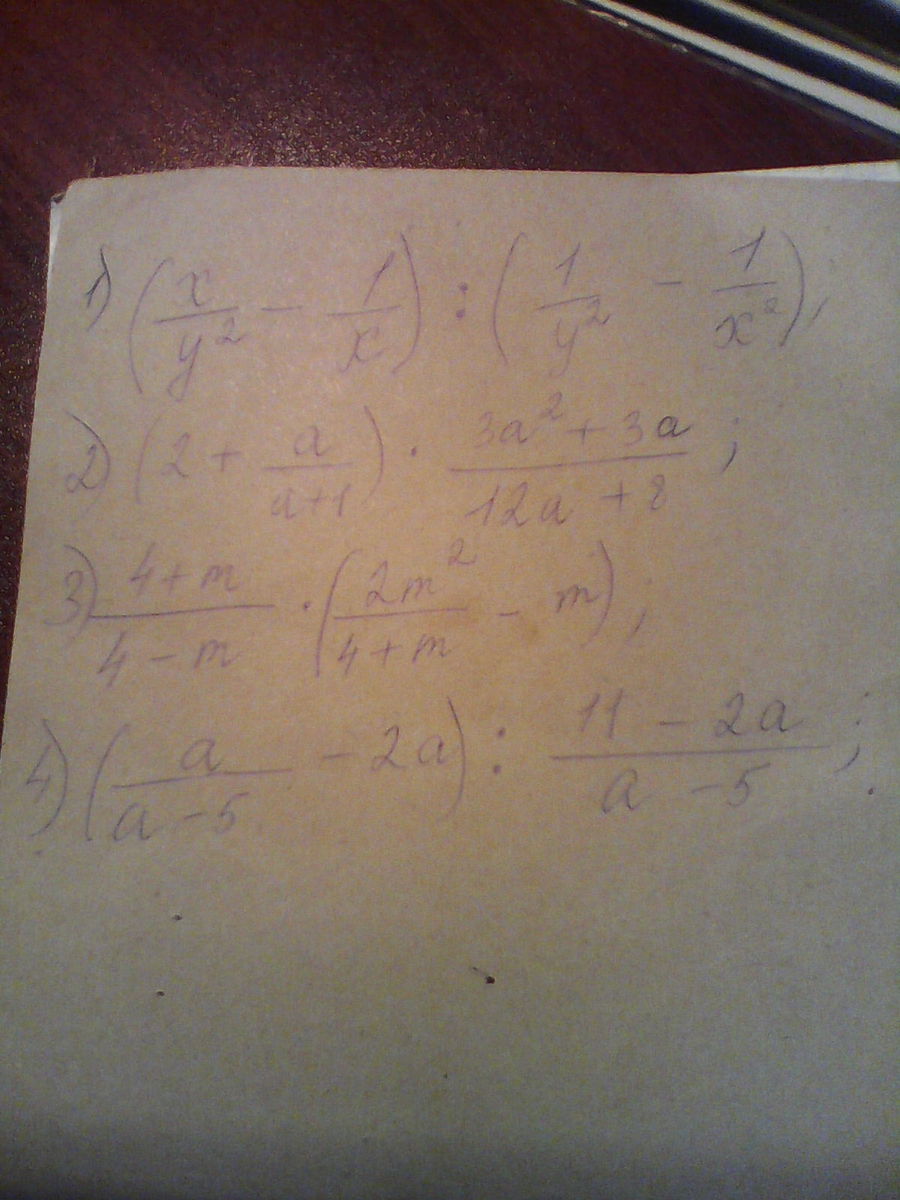 1) (x/y² - 1/x) : (1/y² - 1/x²);
2) (2 + a/(a+1)) · (3a² + 3a)/(12a + 8);
3) (4+m)/(4-m) · (2m²/(4+m) - m);
4) (a/(a-5) - 2a) : (11 - 2a)/(a - 5);